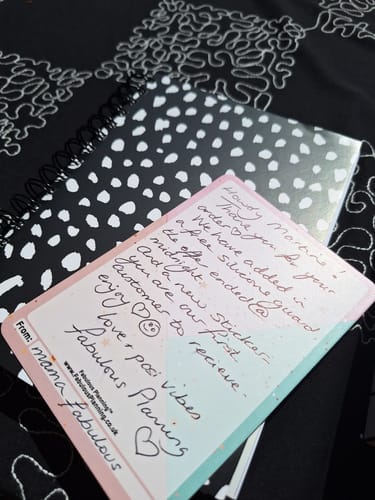 Howdy
Thank you for your
order
We have added in
a free silicone guard
the offer ended @
midnight
& a new sticker -
you are our first
customer to recieve.
enjoy
love + posi vibes
Fabulous Planning
Fabulous Planning™
www.FabulousPlanning.co.uk
From: Mama Fabulous